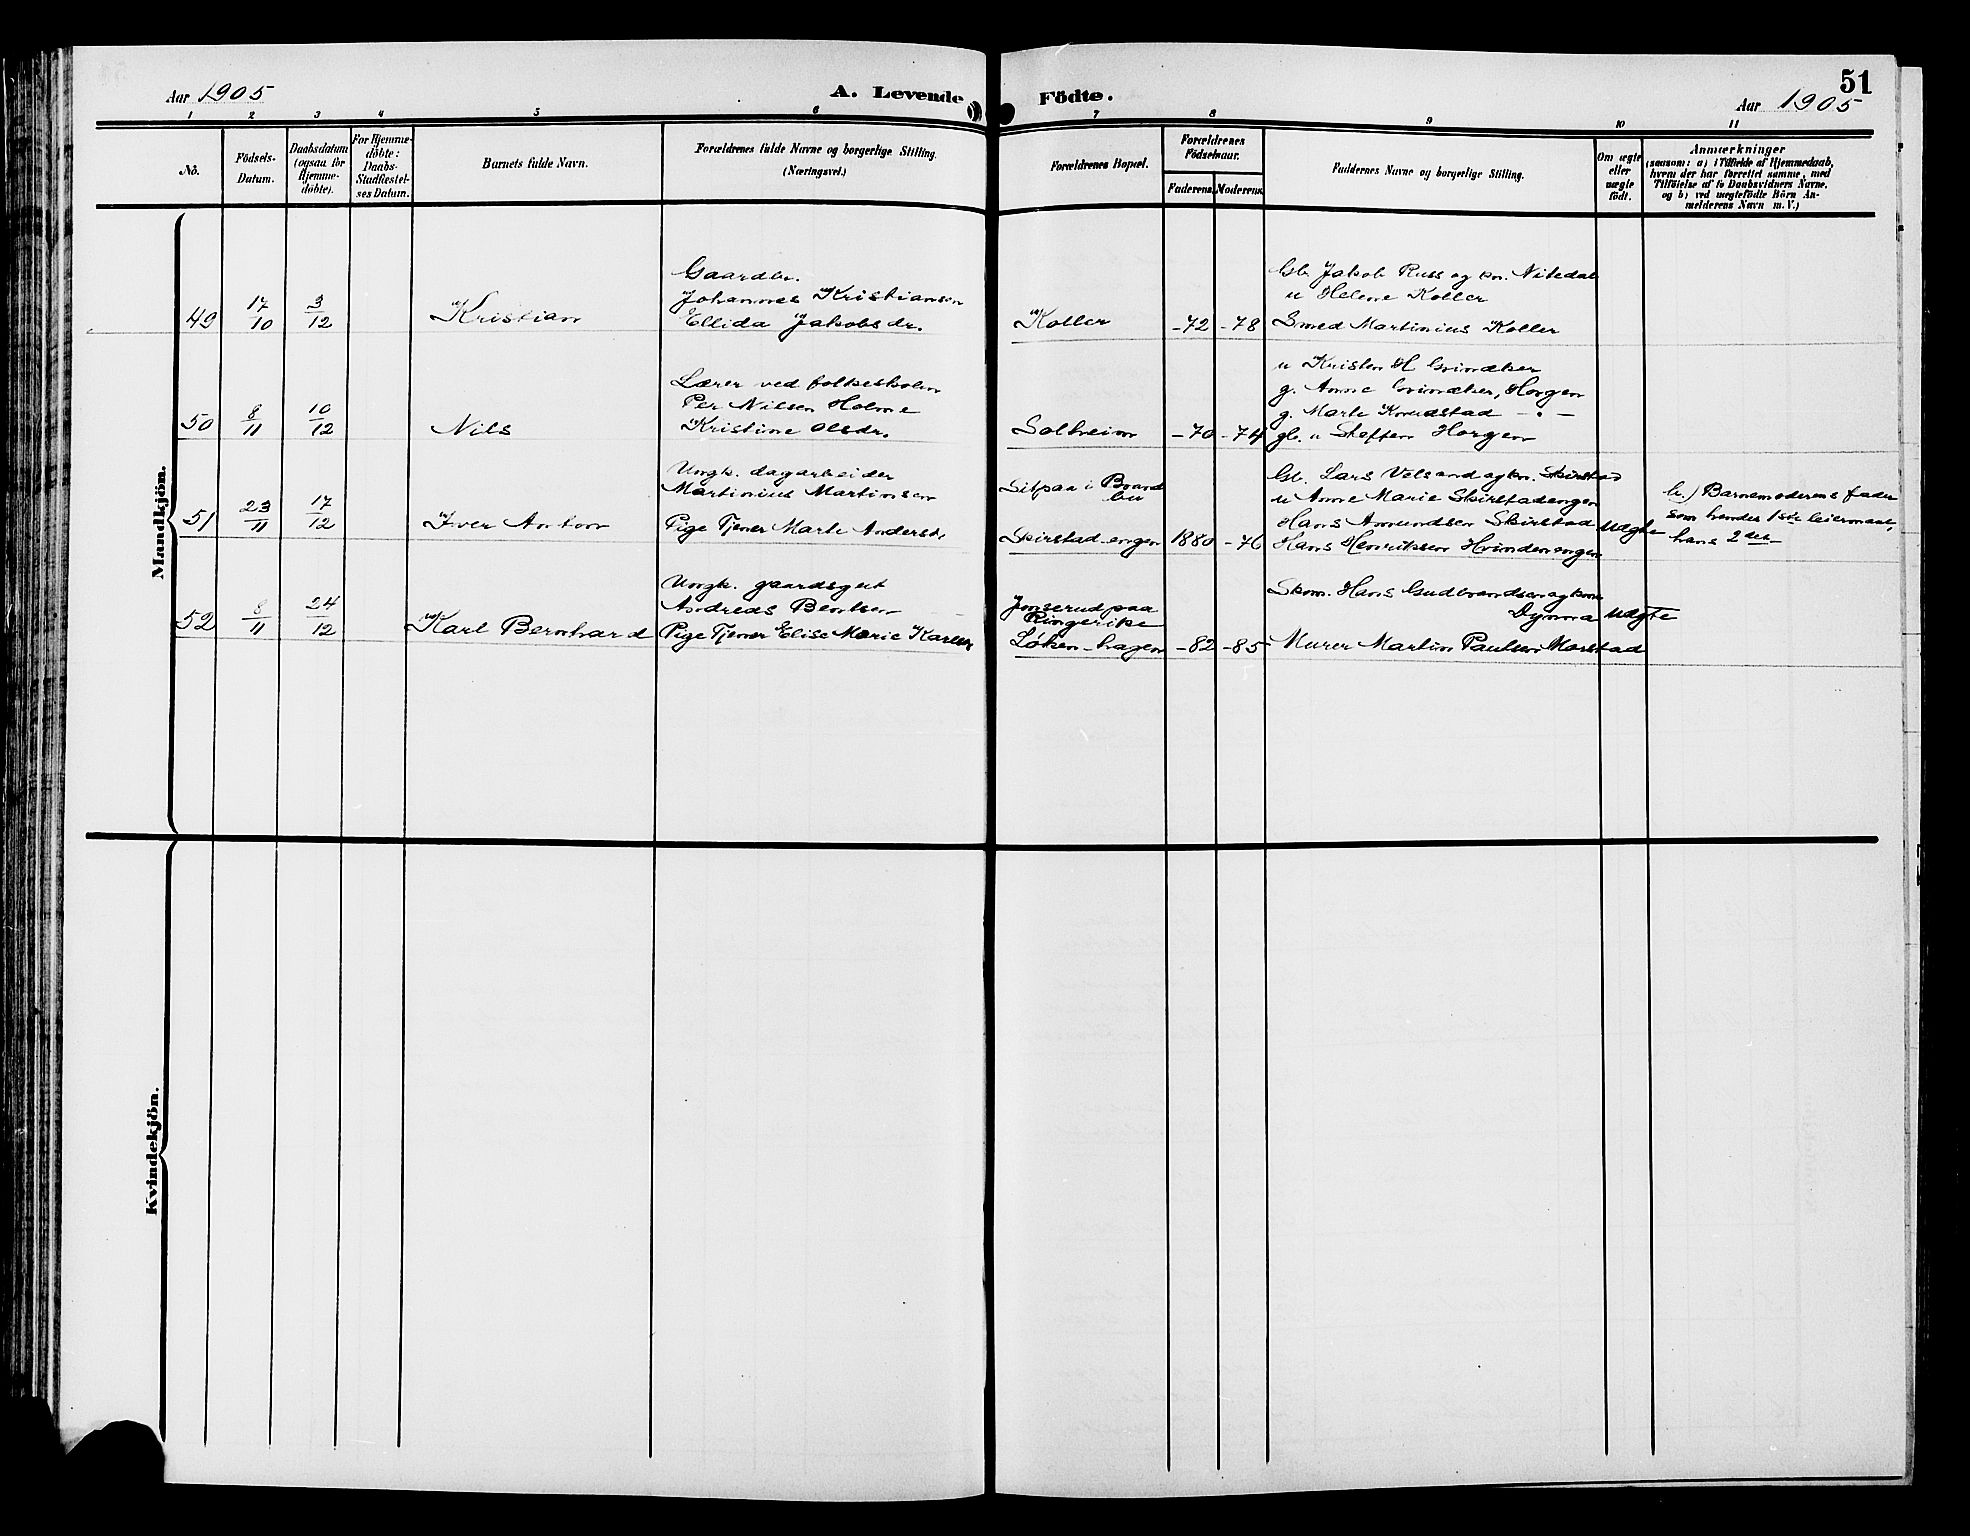 Aar 1905
A. Levende Födte.
51
Aar 1905
1 2 3 4 5 6 7 8 9 10 11
No.
Födsels-
Datum.
Daabsdatum
(ogsaa for
Hjemme-
döbte).
For Hjemme-
döbte:
Daabs-
Stadfæstel-
ses Datum.
Barnets fulde Navn.
Forældrenes fulde Navne og borgerlige Stilling.
(Næringsvei.)
Forældrenes Bopæl.
Forældrenes
Födselsaar.
Faderens. Moderens.
Faddernes Navne og borgerlige Stilling.
Om ægte
eller
uægte
födt.
Anmærkninger
(saasom: a) i Tilfælde af Hjemmedaab,
hvem der har forrettet samme, med
Tilföielse af to Daabsvidners Navne,
og b) ved uægtefödte Börn An-
melderens Navn m. V.)
Mandkjön.
49
17/10
3/12
Kristian
Gaardbr.
Johannes Kristiansen
Ellida Jakobsdr.
Koller
-72 -78
Gb. Jakob Russ og kn. Nitedal
u Helene Koller
Smed Martinius Koller
50
8/11
10/12
Nils
Lærer ved folkeskolen
Per Nilsen Holme
Kristine Olsdr.
Solheim
-70 -74
u Kristen H Grinaker
g. Anne Grinaker, Horgen
g. Marte Knudstad - " -
gb. u Steffen Horgen
51
23/11
17/12
Iver Anton
Ungk. dagarbeider
Martinius Martinsen
Pige Tjener Marte Andersd.
Sitpaa i Brand
bu
Skirstad-engen
1880 -76
Gb. Lars Velsand og kn. Skirstad
u Anne Marie Skirstadengen
Hans Amundsen Skirstad
Hans Henriksen Hvindenengen
Uægte
b.) Barnemoderens fader
som hendes 1ste leiermaal,
hans 2det
52
8/11
24/12
Karl Bernhard
Ungk. gaardsgut
Andreas Bentsen
Pige Tjener Elise Marie Karlsen
Jonserud paa
Ringerike
Løken-hagen
-82 -85
Skom. Hans Gudbrandsen og kone
Dynna
Murer Martin Paulsen Morstad
Uægte
Kvindekjön.